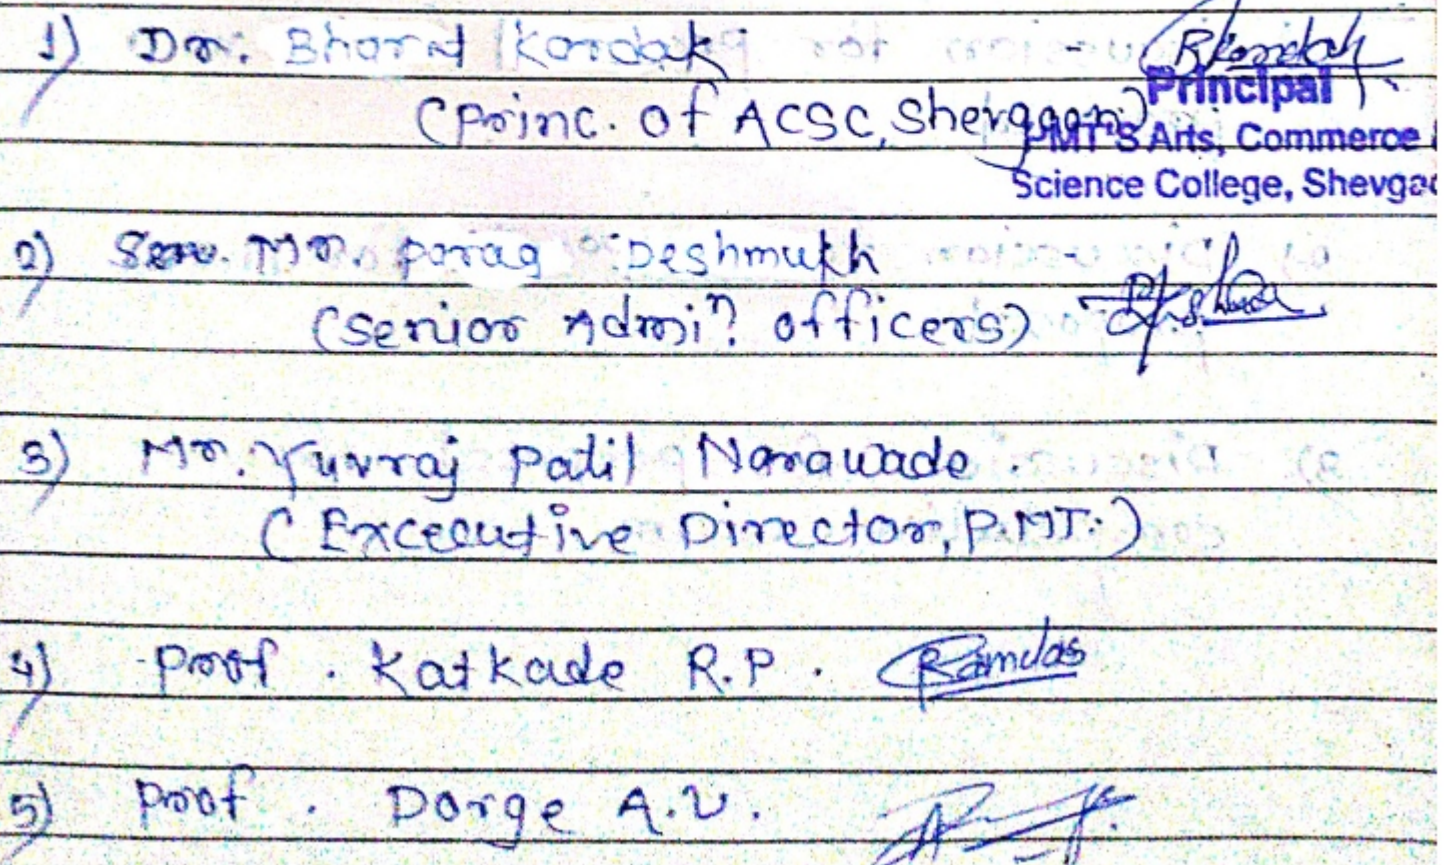 1) Dr. Bharat Kardak - Rkardak
Principal
(princ. of ACSC, Shevgaon)
PMT'S Arts, Commerce
Science College, Shevga
2) Mr. parag Deshmukh
(senior Admiⁿ. officers)
3) Mr. Yuvraj Patil Narawade.
(Excecutive Director, P.MT.)
4) Prof. Katkade R.P. Ramdas
5) Prof. Dorge A.V.